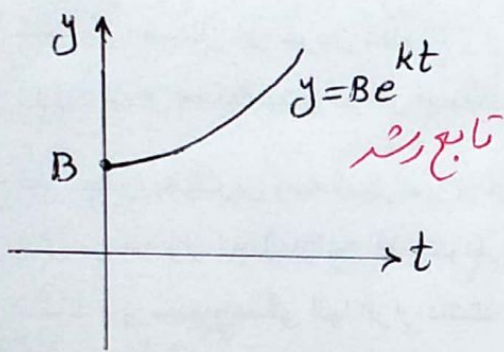 y
y=Be^{kt}
تابع رشد
B
t